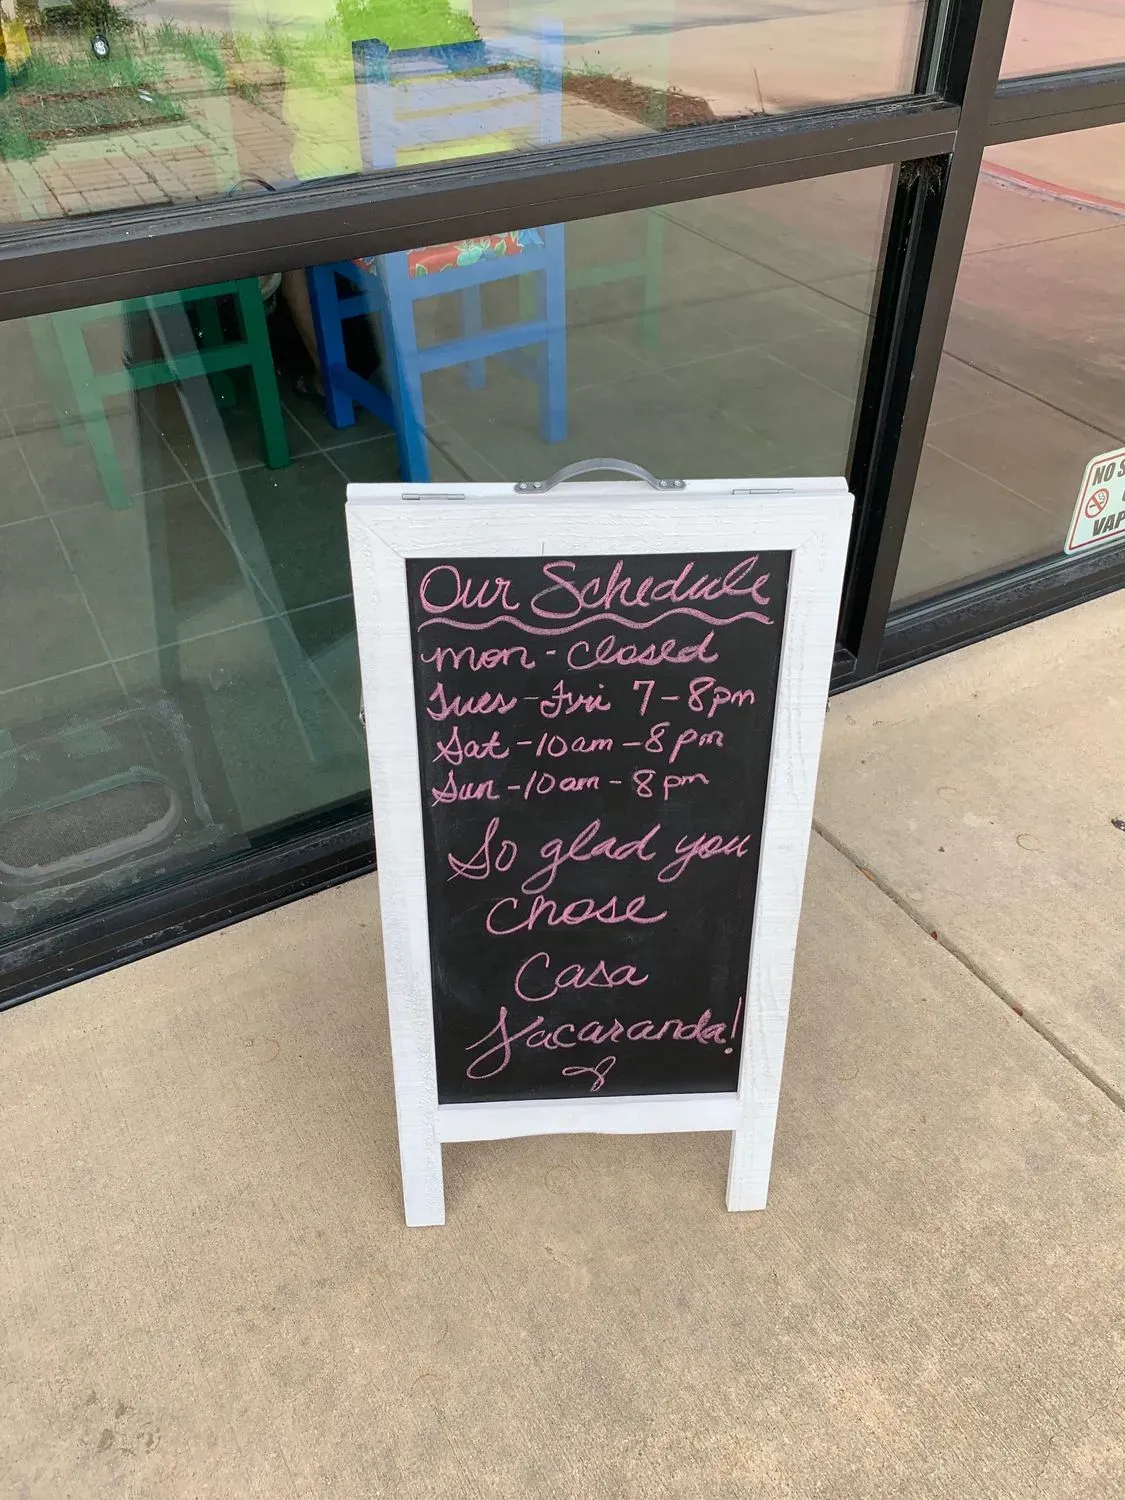 Our Schedule
Mon - Closed
Tues - Fri 7 - 8pm
Sat - 10am - 8pm
Sun - 10am - 8pm
So glad you
chose
Casa
Jacaranda!
NO S
VAP